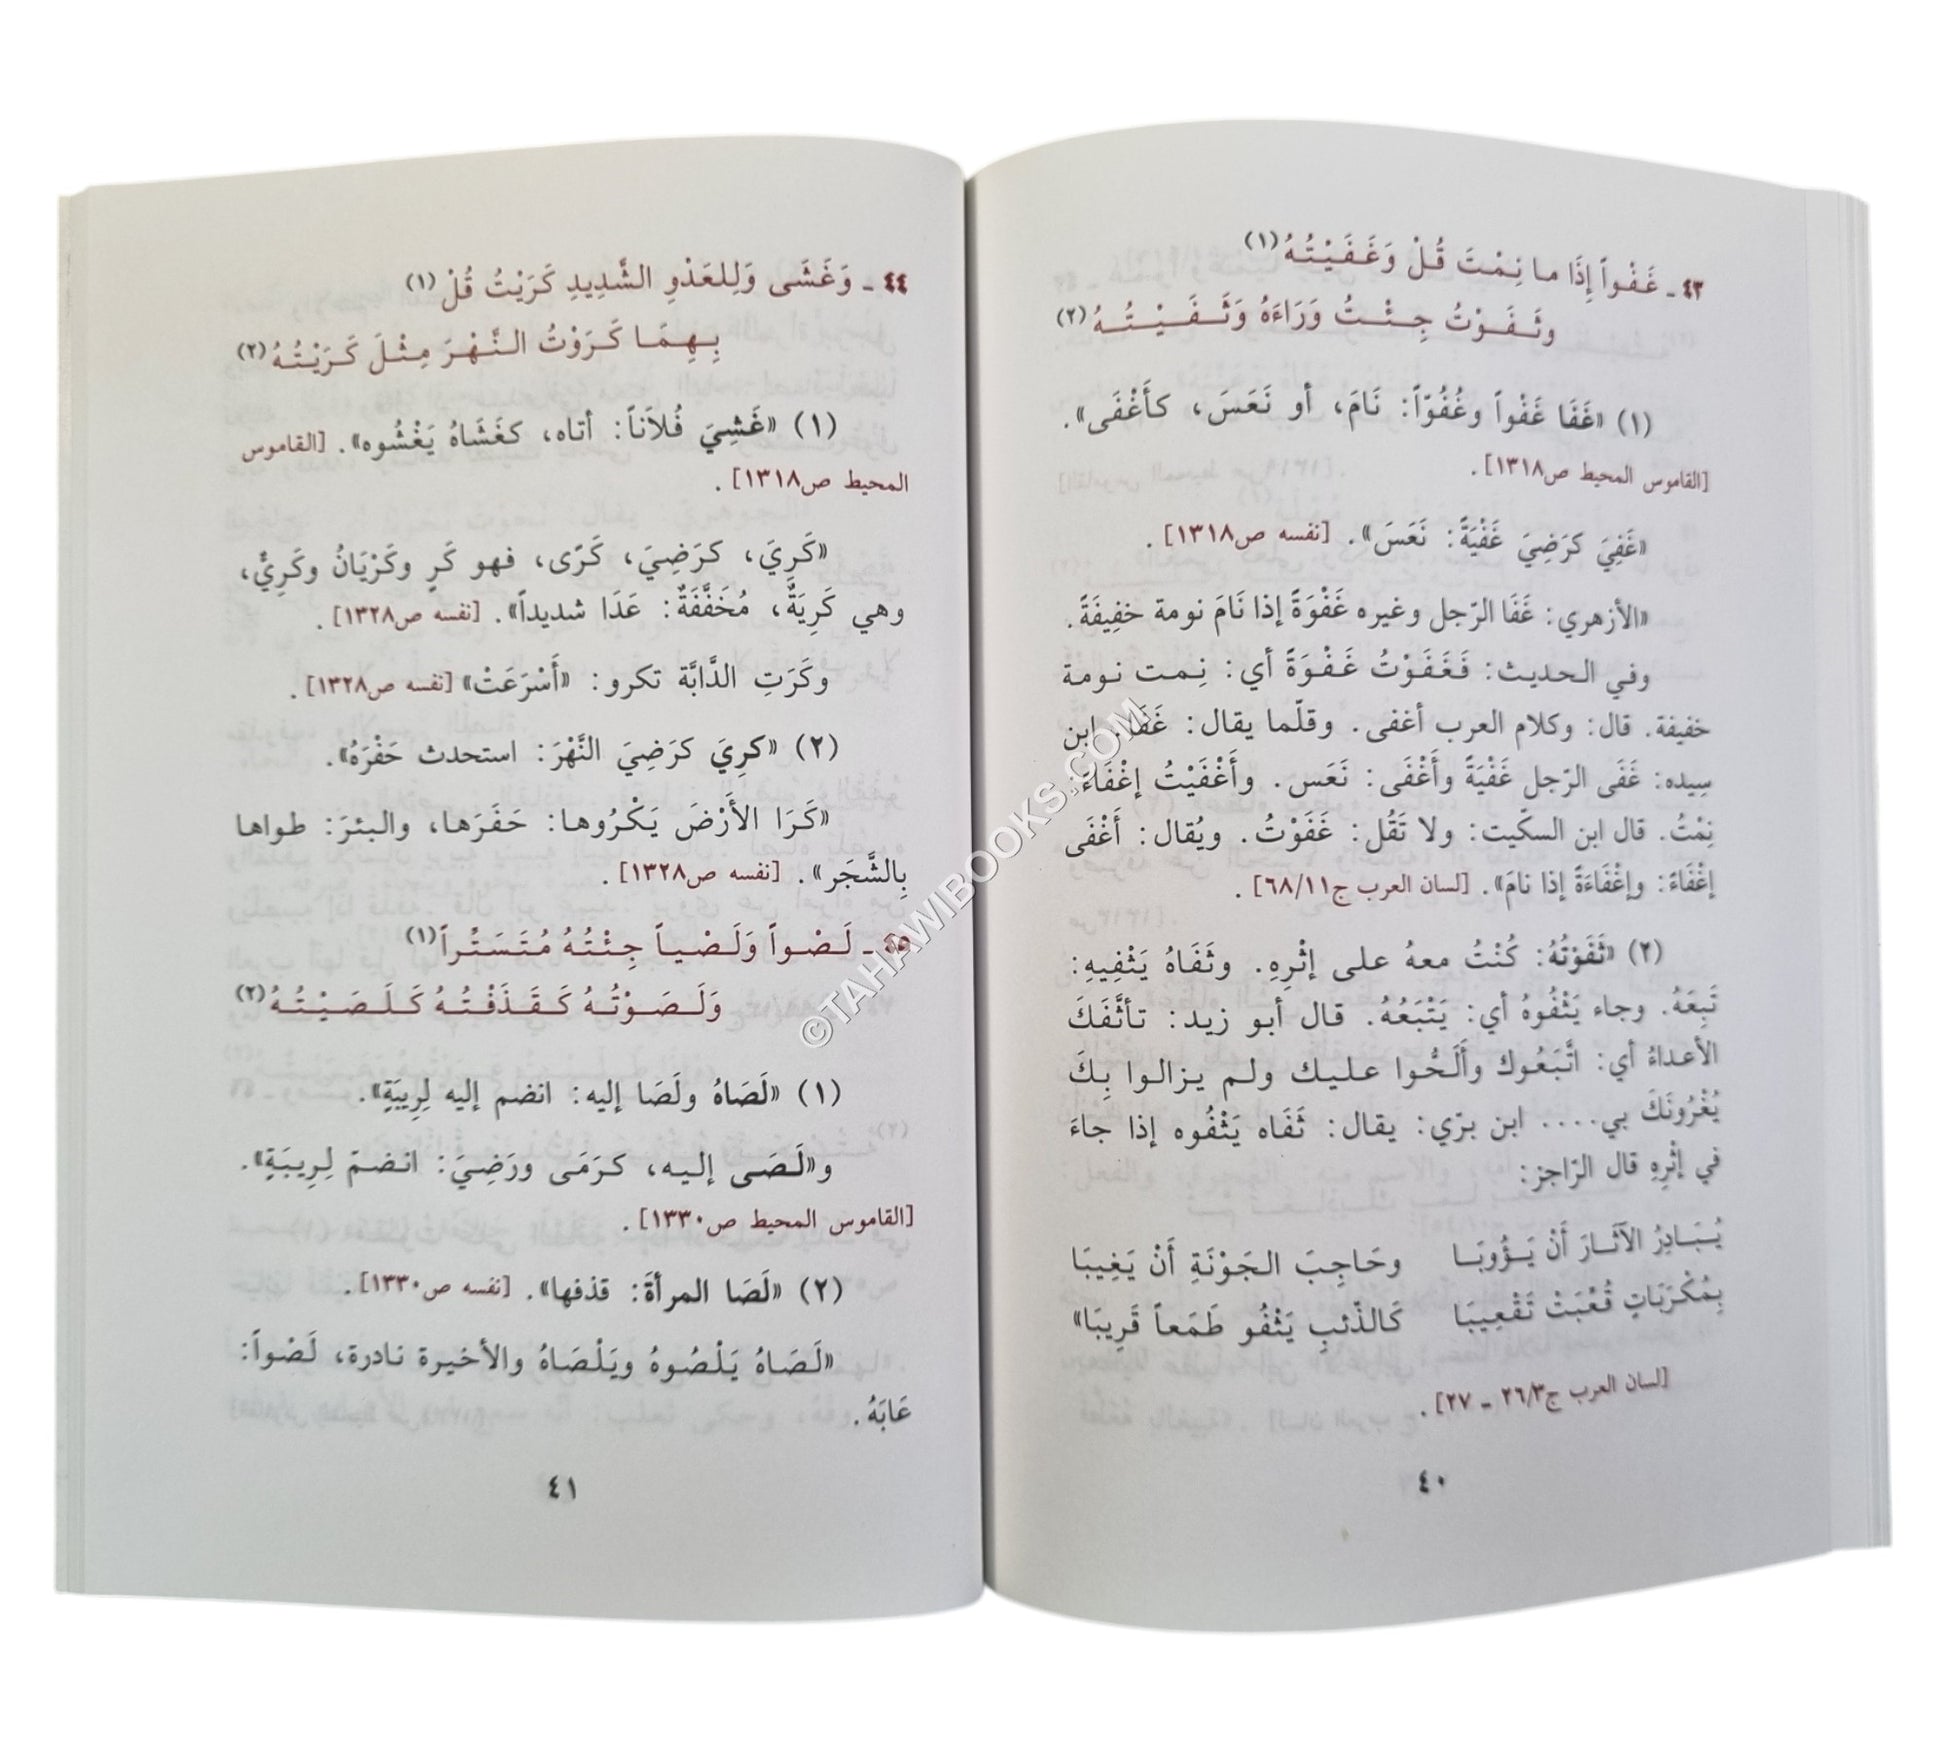 ٤٣ ـ غَفْواً إِذَا ما نِمْتَ قُلْ وَغَفَيْتُهُ(١)
وثَفَوْتُ جِئْتُ وَرَاءَهُ وَثَفَيْتُهُ(٢)
(١) «غَفَا غَفْواً وغُفُوّاً: نَامَ، أو نَعَسَ، كأَغْفَى».
[القاموس المحيط ص١٣١٨].
«غَفِيَ كرَضِيَ غَفْيَةً: نَعَسَ». [نفسه ص١٣١٨].
«الأزهري: غَفَا الرّجل وغيره غَفْوَةً إذا نَامَ نومة خفِيفَةً.
وفي الحديث: فَغَفَوْتُ غَفْوَةً أي: نِمت نومة
خفيفة. قال: وكلام العرب أغفى. وقلّما يقال: غَفَا. ابن
سِيده: غَفَى الرّجل غَفْيَةً وأَغْفَى: نَعَس. وأَغْفَيْتُ إغْفَاءً:
نِمْتُ. قال ابن السكّيت: ولا تَقُل: غَفَوْتُ. ويُقال: أَغْفَى
إغْفَاءً: وإغْفَاءَةً إذا نامَ». [لسان العرب ج٦٨/١١].
(٢) «ثَفَوْتُهُ: كُنْتُ معهُ على إثْرِهِ. وثَفَاهُ يَثْفِيهِ:
تَبِعَهُ. وجاء يَثْفُوهُ أي: يَتْبَعُهُ. قال أبو زيد: تأثَّفَكَ
الأعداءُ أي: اتَّبَعُوك وأَلَحُّوا عليك ولم يزالوا بِكَ
يُغْرُونَكَ بي.... ابن برّي: يقال: ثَفَاه يَثْفُوه إذا جاءَ
في إثْرِهِ قال الرّاجز:
يُبَادِرُ الآثَارَ أَنْ يَؤُوبَا وحَاجِبَ الجَوْنَةِ أَنْ يَغِيبَا
بِمُكْرَبَاتٍ قُعْبَتْ تَقْعِيبَا كَالذّئبِ يَثْفُو طَمَعاً قَرِيبَا»
[لسان العرب ج٢٦/٣ ـ ٢٧].
٤٠
٤٤ ـ وَغَشَى وَلِلعَدْوِ الشَّدِيدِ كَرَيْتُ قُلْ(١)
بِهِمَا كَرَوْتُ النَّهْرَ مِثْلَ كَرَيْتُهُ(٢)
(١) «غَشِيَ فُلاَناً: أتاه، كغَشَاهُ يَغْشُوه». [القاموس
المحيط ص١٣١٨].
«كَرِيَ، كرَضِيَ، كَرًى، فهو كَرٍ وكَرْيَانُ وكَرِيٌّ،
وهي كَرِيَةٌ، مُخَفَّفَةٌ: عَدَا شديداً». [نفسه ص١٣٢٨].
وكَرَتِ الدَّابَّة تكرو: «أَسْرَعَتْ» [نفسه ص١٣٢٨].
(٢) «كرِيَ كرَضِيَ النَّهْرَ: استحدث حَفْرَهُ».
«كَرَا الأَرْضَ يَكْرُوها: حَفَرَها، والبئرَ: طواها
بِالشَّجَر». [نفسه ص١٣٢٨].
٤٥ ـ لَصْواً وَلَصْياً جِئْتُهُ مُتَسَتِّراً(١)
وَلَصَوْتُهُ كَقَذَفْتُهُ كَلَصَيْتُهُ(٢)
(١) «لَصَاهُ ولَصَا إليه: انضم إليه لِرِيبَةٍ».
و«لَصَى إليه، كرَمَى ورَضِيَ: انضمّ لِرِيبَةٍ».
[القاموس المحيط ص١٣٣٠].
(٢) «لَصَا المرأةَ: قذفها». [نفسه ص١٣٣٠].
«لَصَاهُ يَلْصُوهُ ويَلْصَاهُ والأخيرة نادرة، لَصْواً:
عَابَهُ.
٤١
©TAHAWIBOOKS.COM